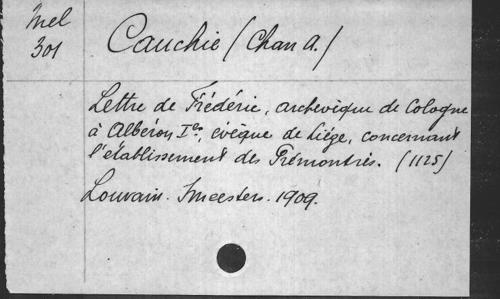 Mel
301
Cauchie (Chan A.)
Lettre de Frédéric, archevêque de Cologne
à Albéron Ier, évêque de Liége, concernant
l'établissement des Prémontrés. (1125)
Louvain. Smeesters. 1909.